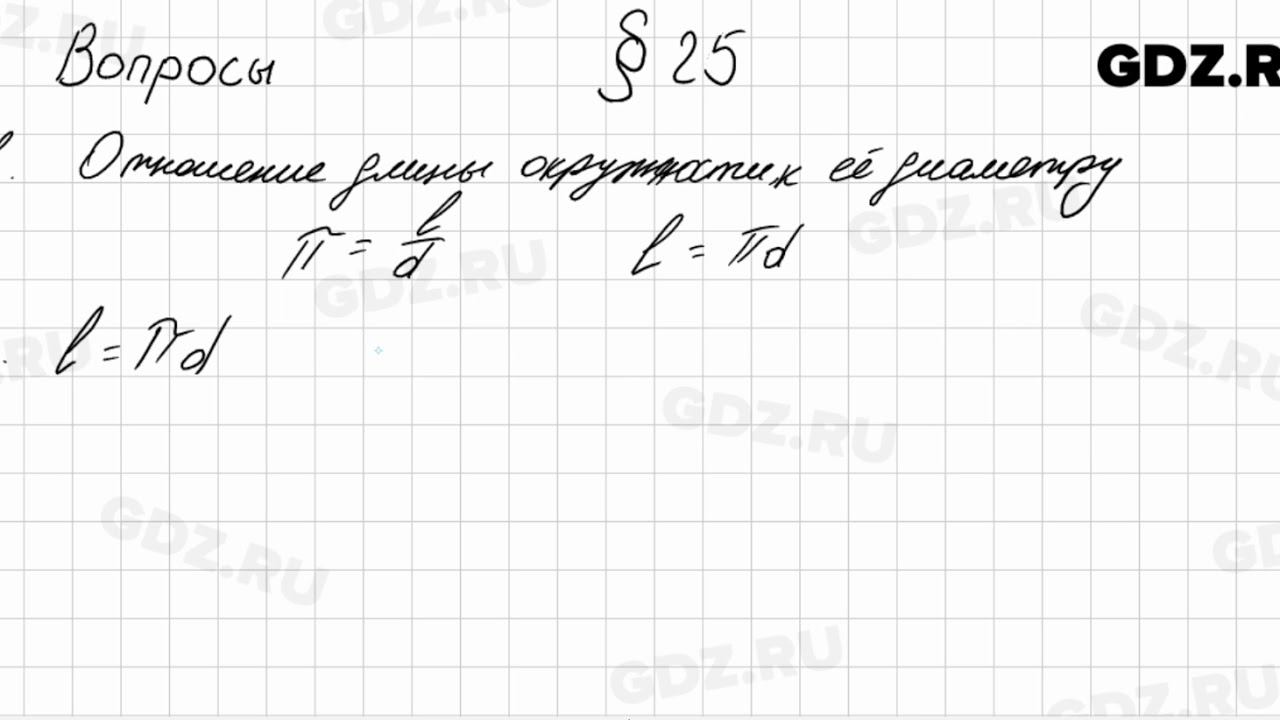 Вопросы § 25 GDZ.R
1. Отношение длины окружности к её диаметру
π = l/d l = πd
l = πd
GDZ.RU
GDZ.RU
GDZ.RU
GDZ.RU
GDZ.RU
GDZ.RU
GDZ.RU
GDZ.RU
GDZ
GDZ.RU
GDZ.RU